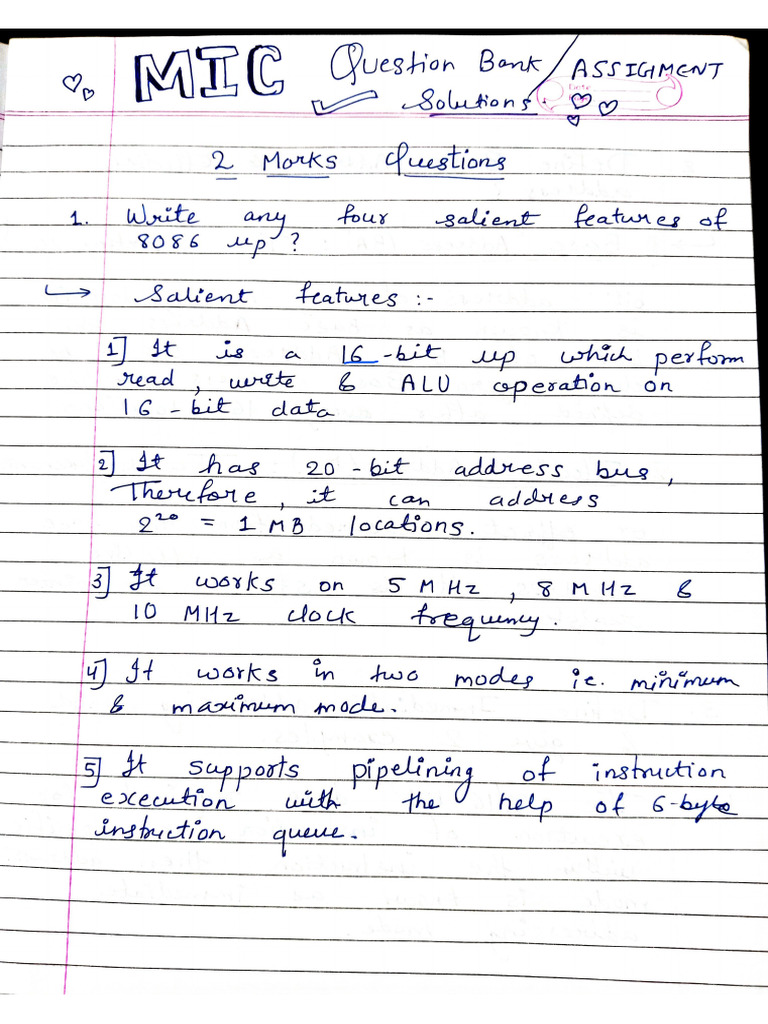 MIC Question Bank / ASSIGMENT
Solutions
2 Marks Questions
1. Write any four salient features of
8086 up ?
↳ Salient features :-
1] It is a 16-bit up which perform
read, write & ALU operation on
16-bit data
2] It has 20-bit address bus,
Therefore, it can address
2²⁰ = 1 MB locations.
3] It works on 5 MHz, 8 MHz &
10 MHz clock frequency.
4] It works in two modes ie. minimum
& maximum mode.
5] It supports pipelining of instruction
execution with the help of 6-byte
instruction queue.